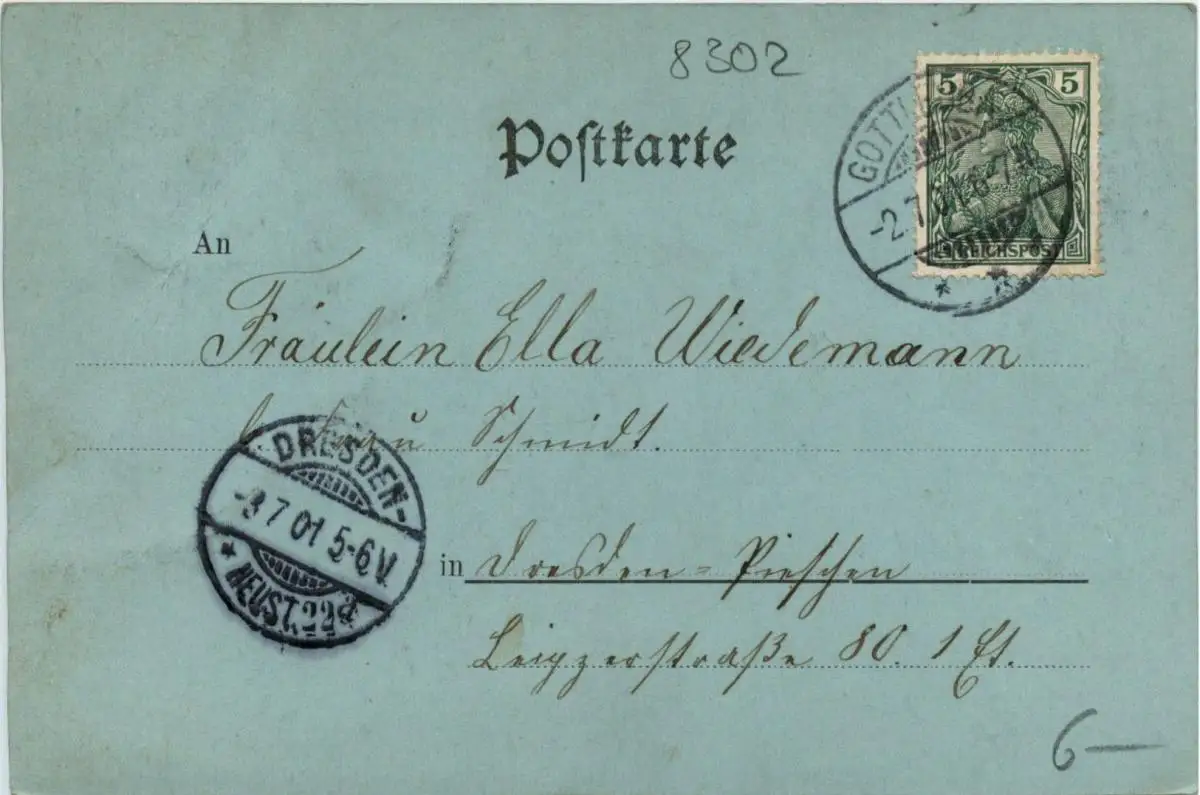 8302
Postkarte
5 5
REICHSPOST
GOTTL
-2.7.01. 6-7N.
An
Fräulein Ella Wiedemann
b. Frau Schmidt.
DRESDEN-
-3 7 01 5-6V.
* NEUST. 22 *
in Dresden-Pieschen
Leipzerstraße 80. 1 Et.
6—